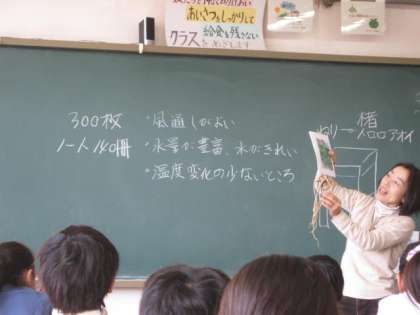 あいさつをしっかりして
給食を残さない
クラス
300枚
ノート140冊
・風通しがよい
・水量が豊富、水がきれい
・湿度変化の少ないところ
ねり→
楮
アオイ